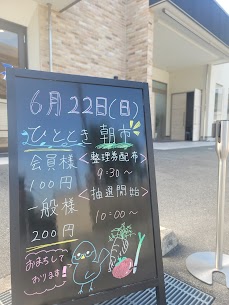 6月22日(日)
ひととき 朝市
会員様 <整理券配布>
100円 9:30〜
一般様 <抽選開始>
200円 10:00〜
おまちして
おります!